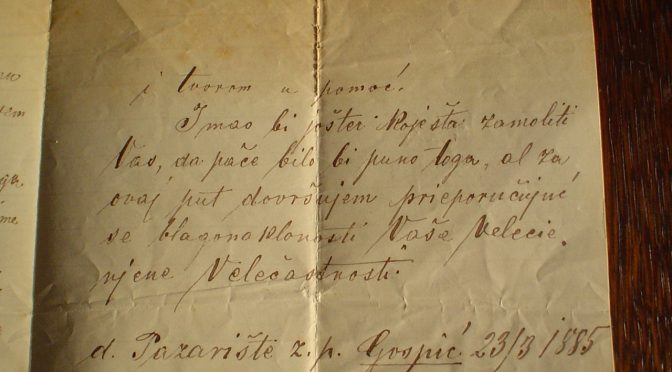 i tvorom u pomoć.
Imao bi jošter koješta zamoliti
Vas, da pače bilo bi puno toga, al za
ovaj put dovršujem prieporučujuć
se blagonaklonosti Vaše Velecie
njene Velečastnosti.
d. Pazarište z. p. Gospić 23/3 1885